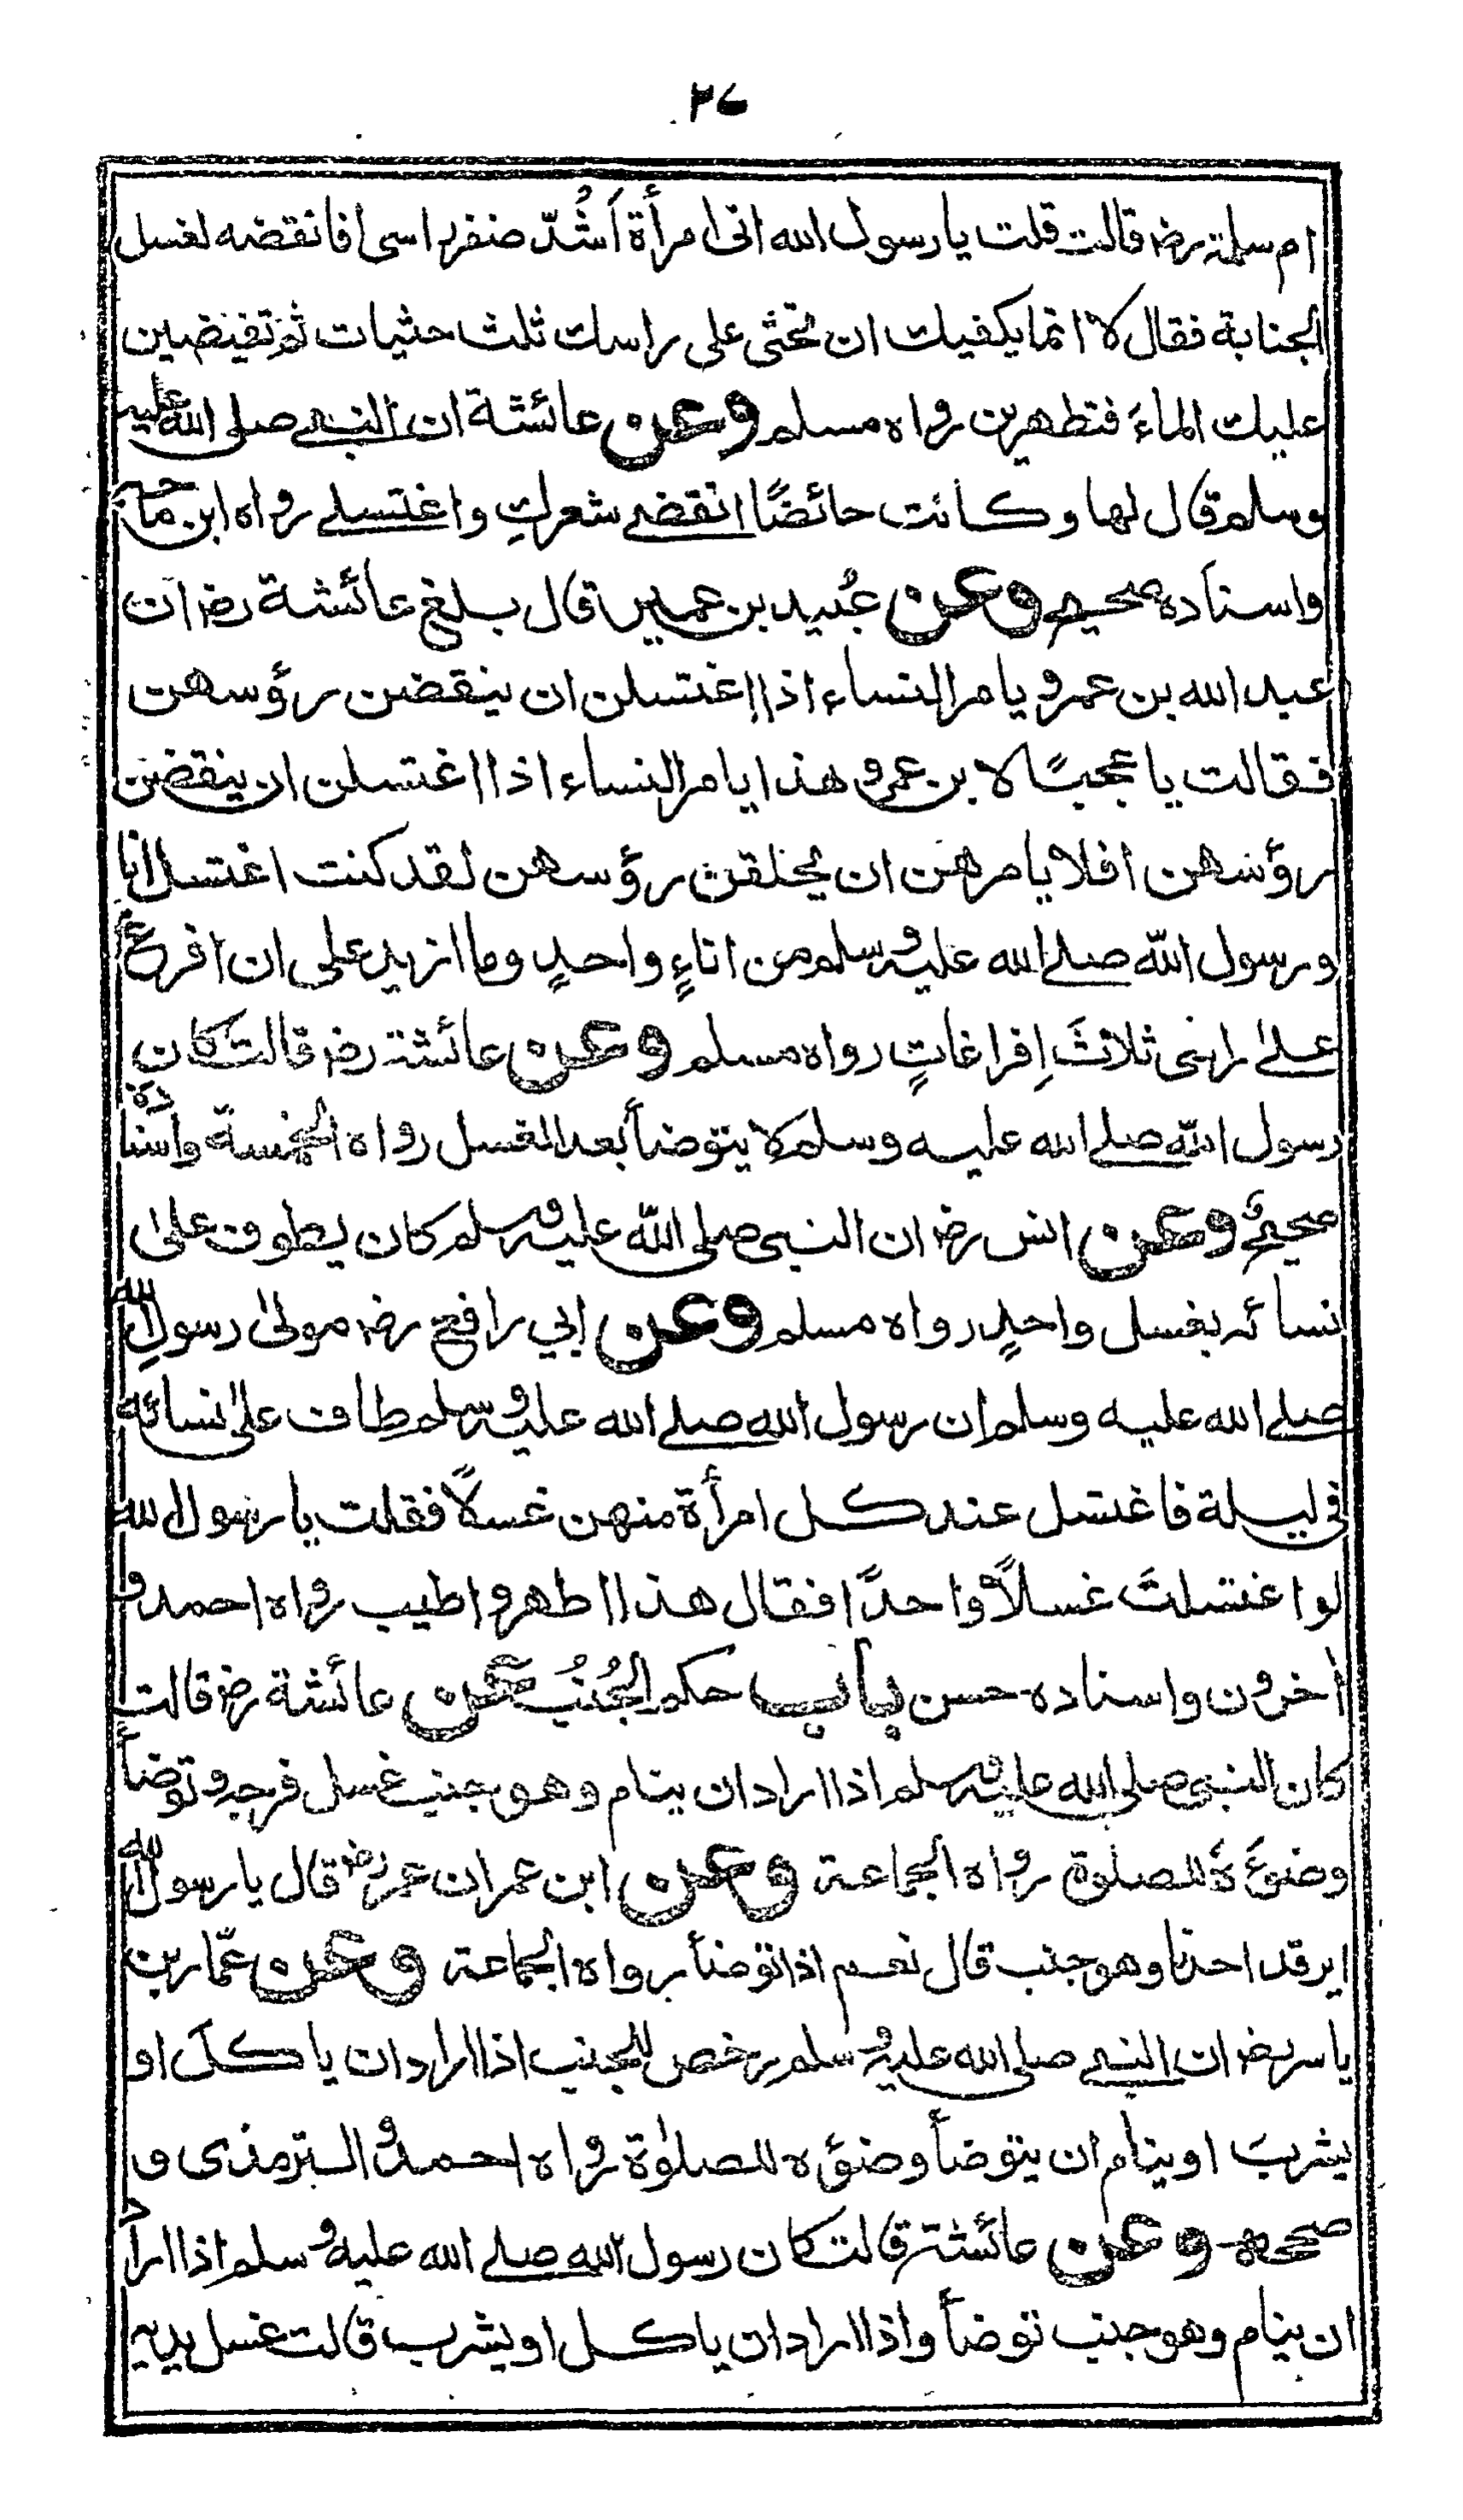 ٢٤
ام سلمة رض قالت قلت يا رسول الله انى امرأة اَشُدّ ضفر راسى افانقضه لغسل
الجنابة فقال لا انما يكفيك ان تحثى على راسك ثلث حثيات ثم تفيضين
عليك الماءَ فتطهرين رواه مسلم وعن عائشة ان النبى صلى الله عليه
وسلم قال لها وكانت حائضًا انقضى شعركِ واغتسلى رواه ابن ماجه
واسناده صحيح وعن عُبيد بن عمير قال بلغ عائشة رض ان
عبد الله بن عمرو يامر النساء اذا اغتسلن ان ينقضن رؤسهن
فقالت يا عجبًا لابن عمرو هذا يامر النساء اذا اغتسلن ان ينقضن
رؤسهن افلا يامرهن ان يحلقن رؤسهن لقد كنت اغتسل انا
ورسول الله صلى الله عليه وسلم من اناءٍ واحدٍ وما ازيد على ان افرغ
على راسى ثلاثَ اِفراغاتٍ رواه مسلم وعن عائشة رض قالت كان
رسول الله صلى الله عليه وسلم لا يتوضأ بعد الغسل رواه الخمسة واسناده
صحيح وعن انس رض ان النبى صلى الله عليه وسلم كان يطوف على
نسائه بغسل واحدٍ رواه مسلم وعن ابي رافع رض مولى رسولِ الله
صلى الله عليه وسلم ان رسول الله صلى الله عليه وسلم طاف على نسائه
فى ليلة فاغتسل عند كل امرأة منهن غسلاً فقلت يا رسول الله
لو اغتسلتَ غسلاً واحدًا فقال هذا اطهر واطيب رواه احمد و
اٰخرون واسناده حسن باب حكم الجُنُب عن عائشة رض قالت
كان النبى صلى الله عليه وسلم اذا اراد ان ينام وهو جنب غسل فرجه وتوضأ
وضوءَهٗ للصلوة رواه الجماعة وعن ابن عمر ان عمر رض قال يا رسول الله
ايرقد احدنا وهو جنب قال نعم اذا توضأ رواه الجماعة وعن عمّار بن
ياسر رض ان النبى صلى الله عليه وسلم رخص للجنب اذا اراد ان ياكل او
يشربَ او ينام ان يتوضأ وضوءه للصلوٰة رواه احمد والترمذى و
صححه وعن عائشة رض قالت كان رسول الله صلى الله عليه وسلم اذا اراد
ان ينام وهو جنب توضأ واذا اراد ان ياكل او يشرب قالت غسل يديه